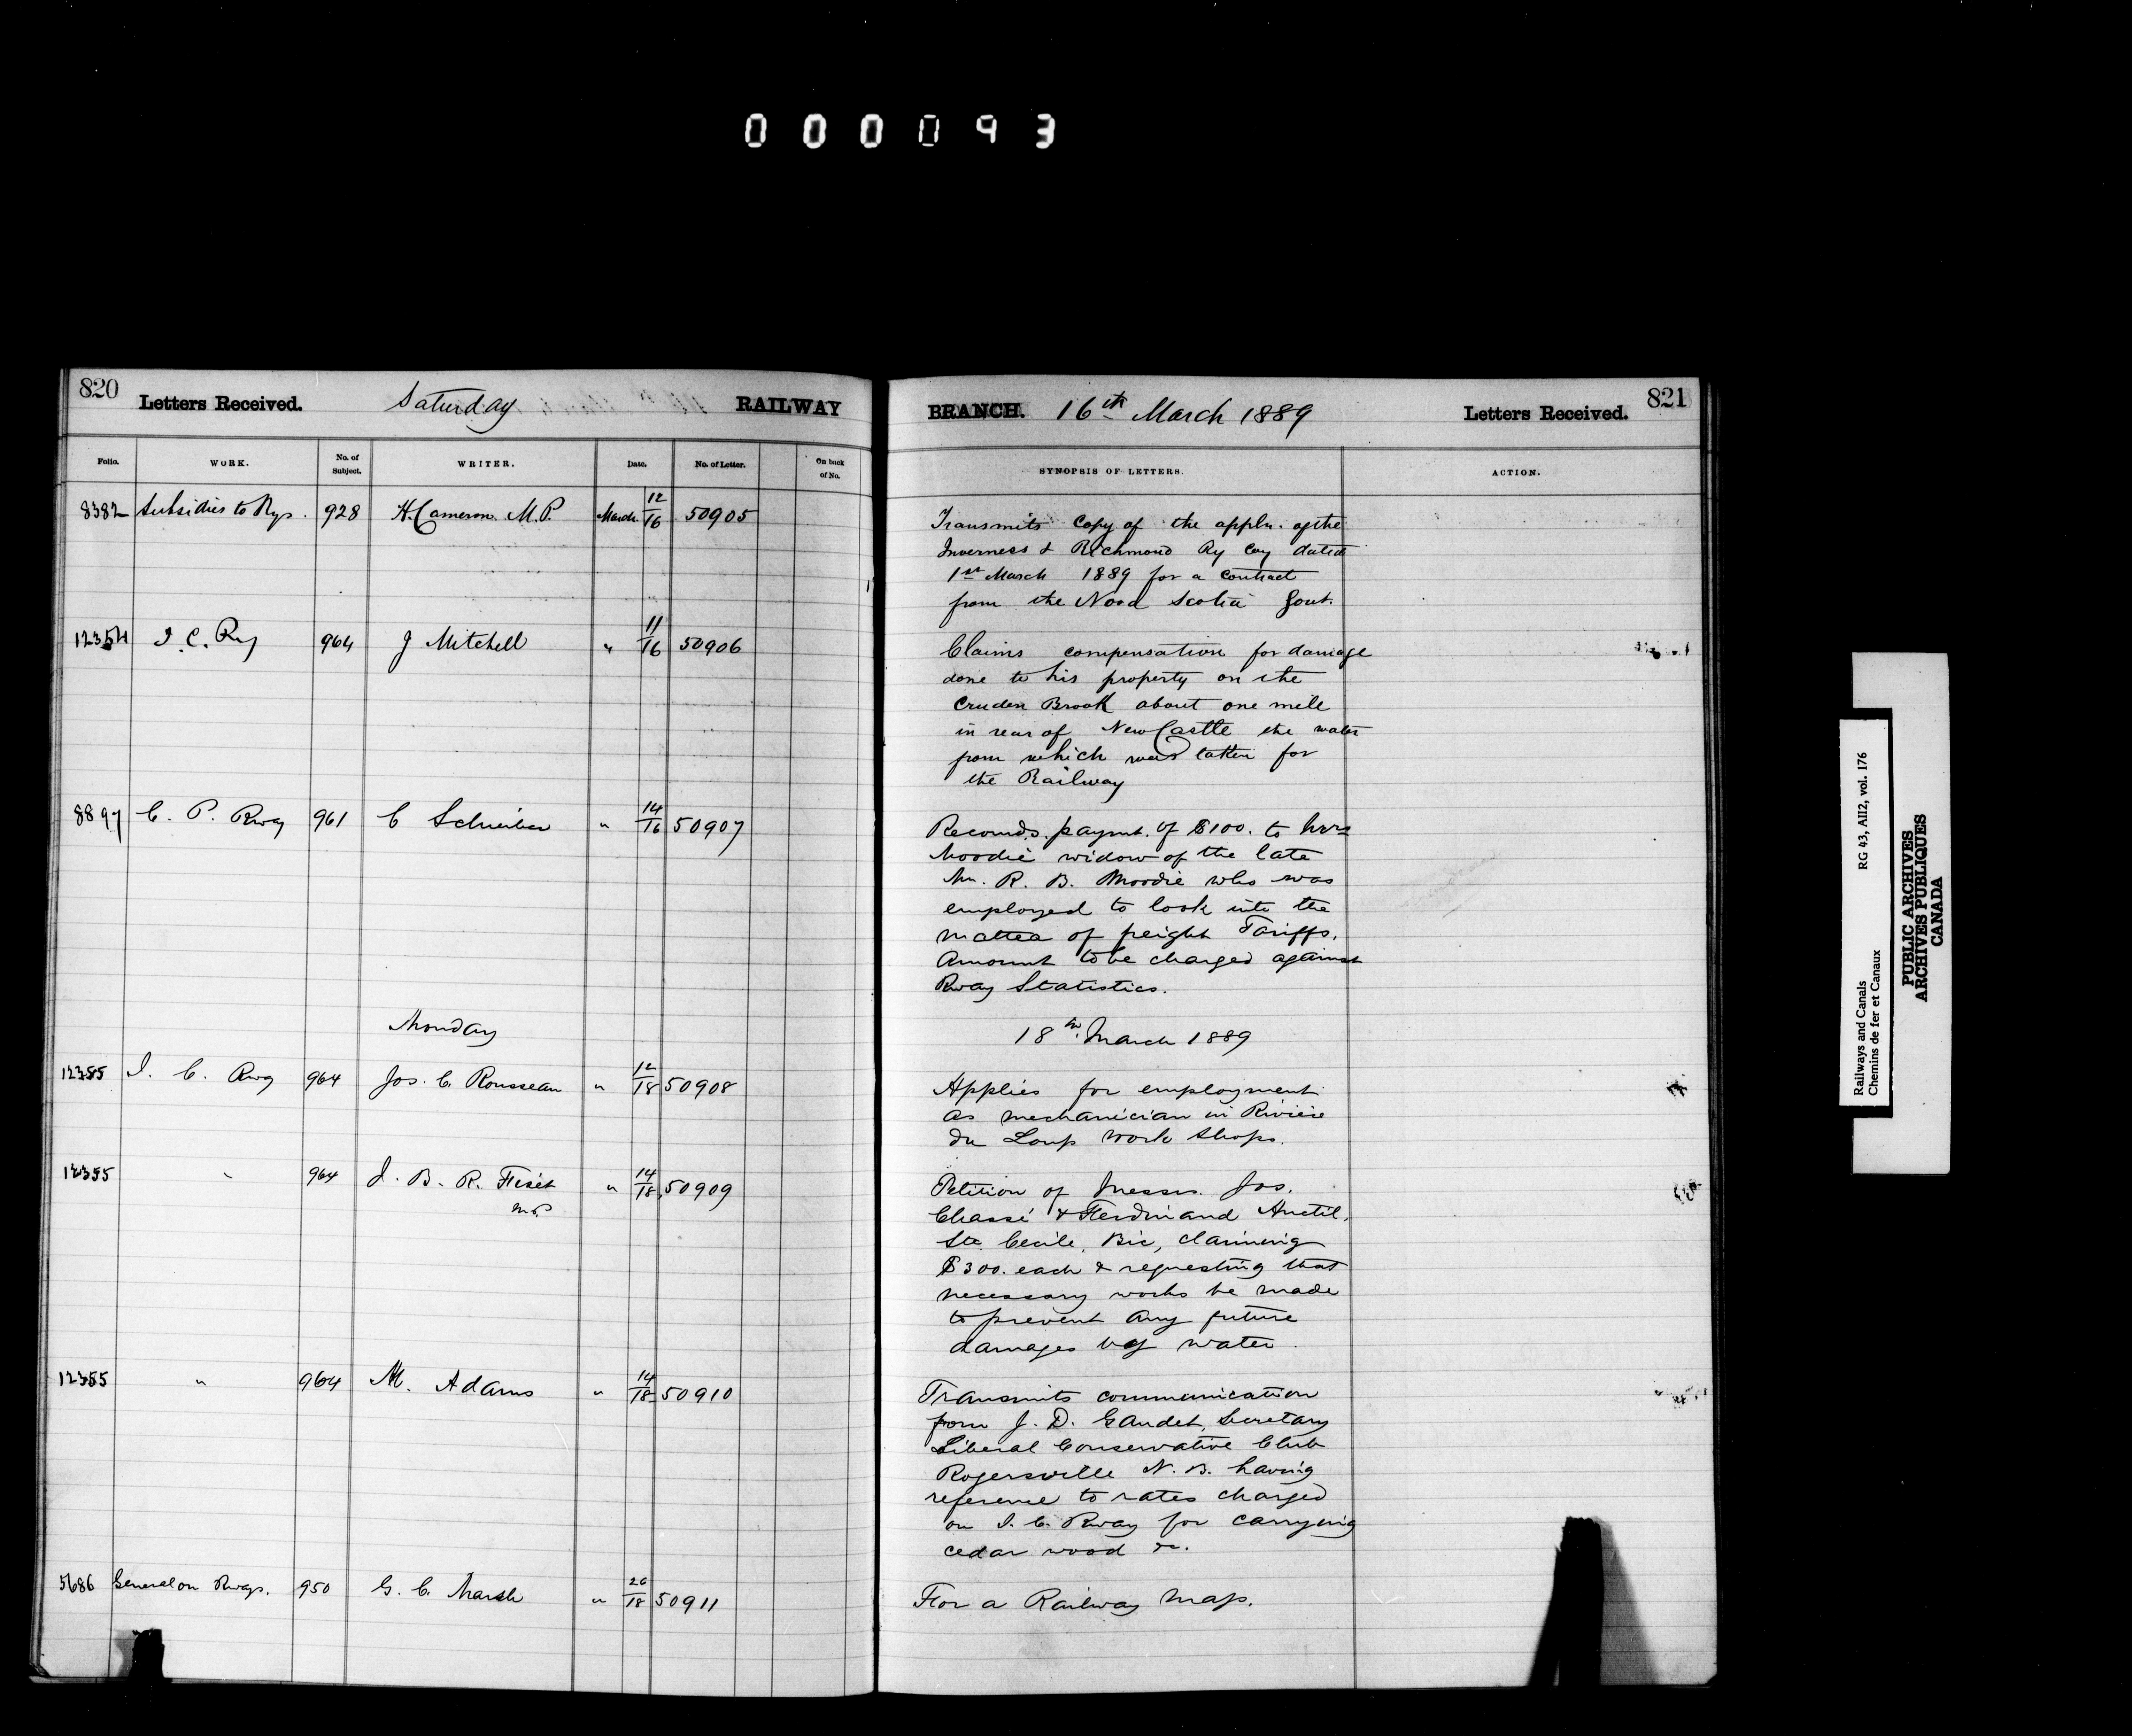 000093
820 Letters Received. Saturday RAILWAY
Folio. WORK. No. of Subject. WRITER. Date. No. of Letter. On back of No.
8382 Subsidies to Rys. 928 H. Cameron M.P. March 12/16 50905
12354 I. C. Ry 964 J Mitchell " 11/16 50906
8897 C. P. Rway 961 C Schreiber " 14/16 50907
Monday
12355 I. C. Rway 964 Jos. C. Rousseau " 12/18 50908
12355 " 964 J. B. R. Fiset M.P. " 14/18 50909
12355 " 964 M. Adams " 14/18 50910
5686 General on Rways. 950 G. C. Marsh " 26/18 50911
BRANCH. 16th March 1889 Letters Received. 821
SYNOPSIS OF LETTERS. ACTION.
Transmits copy of the appln. of the
Inverness & Richmond Ry Coy dated
1st March 1889 for a contract
from the Nova Scotia Govt.
Claims compensation for damage
done to his property on the
Cruden Brook about one mile
in rear of NewCastle the water
from which was taken for
the Railway
Recomds. paymt. of $100. to Mrs
Moodie widow of the late
Mr. R. B. Moodie who was
employed to look into the
matter of freight Tariffs.
Amount to be charged against
Rway Statistics.
18th March 1889
Applies for employment
as mechanician in Riviere
du Loup Work Shops.
Petition of Messrs. Jos.
Chassé & Ferdinand Anctil,
Ste Cecile, Bic, claiming
$300. each & requesting that
necessary works be made
to prevent any future
damages by water.
Transmits communication
from J. D. Gaudet, Secretary
Liberal Conservative Club
Rogersville N. B. having
reference to rates charged
on I. C. Rway for carrying
cedar wood &c.
For a Railway Map.
Railways and Canals RG 43, AII2, vol. 176
Chemins de fer et Canaux
PUBLIC ARCHIVES
ARCHIVES PUBLIQUES
CANADA